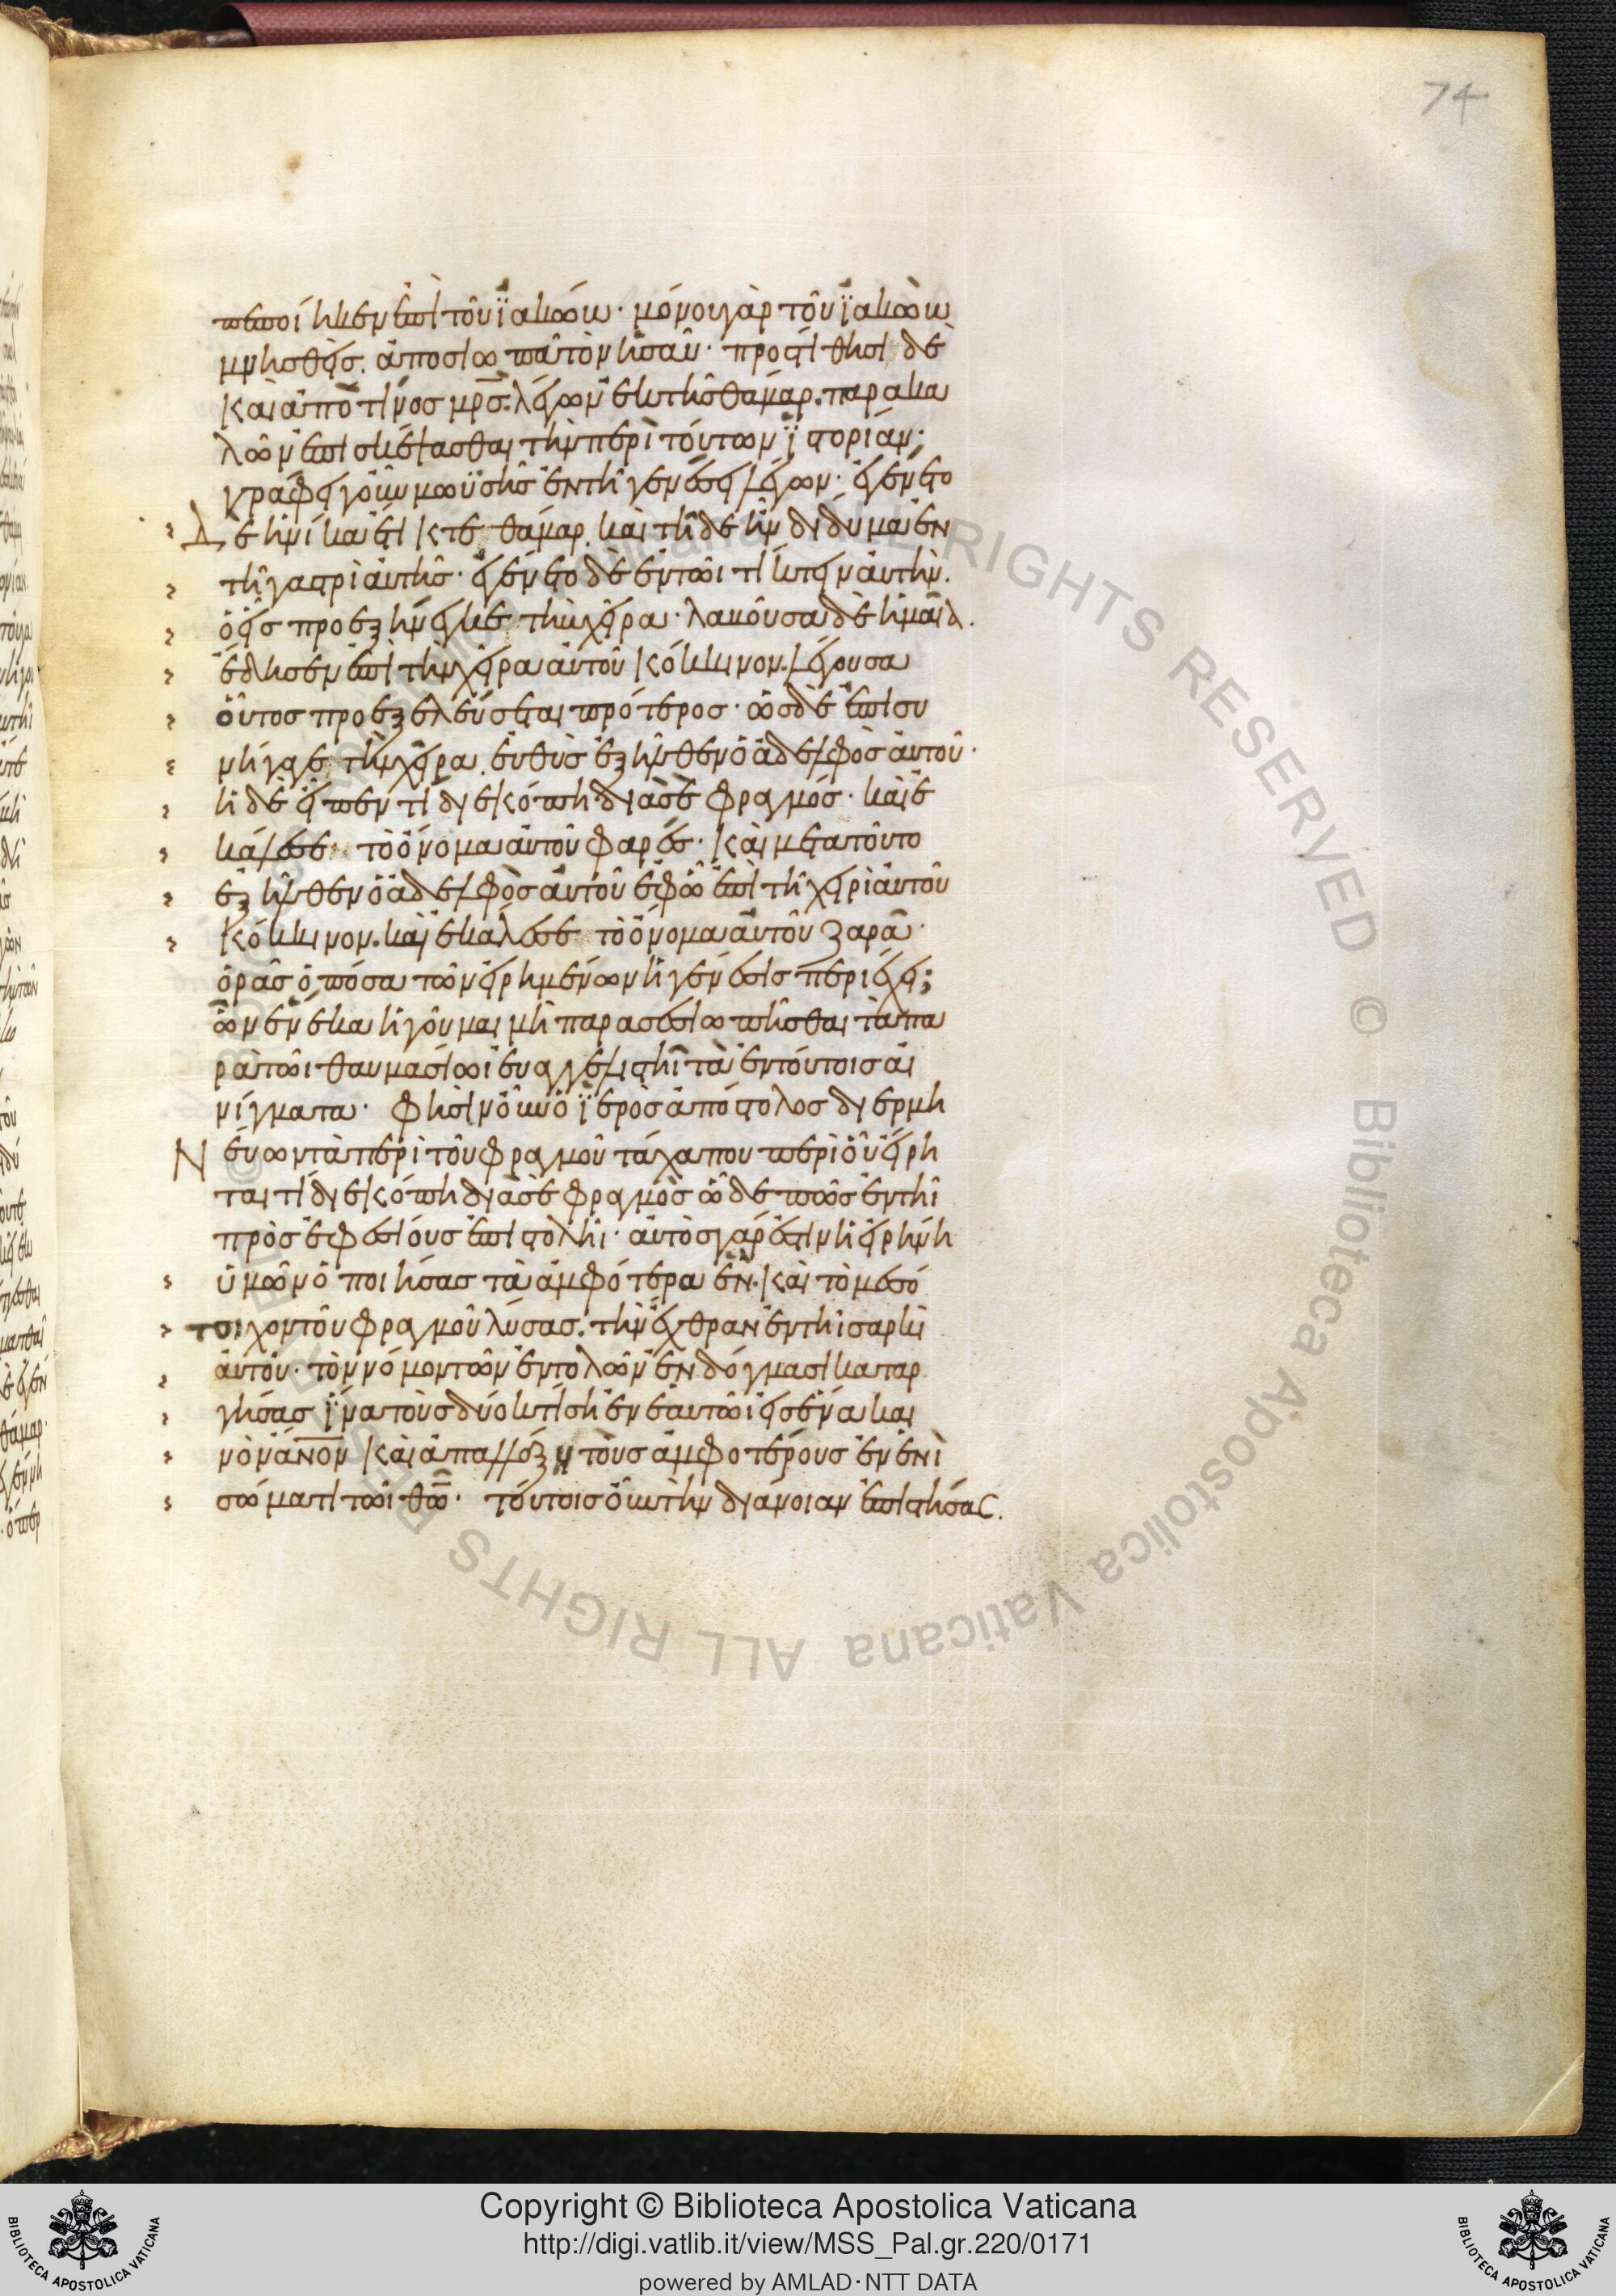 74
πεποίηκεν ἐπὶ τοῦ ϊακώβ· μόνου γὰρ τοῦ ϊακὼβ
μνησθεὶς. ἀποσιωπᾶ τὸν ἠσαῦ· προστίθησι δὲ
καὶ ἀπό τινος μρσ. λέγων ἐκ τῆς θάμαρ. παρακα
λῶν ἐπισκέψασθαι τὴν περὶ τούτων ϊστορίαν·
γράφει γοῦν μωϋσῆς ἐν τῆ γενέσει λέγων· ἐγένετο
δὲ ἡνίκα ἔτικτε θάμαρ. καὶ τῆδε ἦν δίδυμα ἐν
τῆ γαστρὶ αὐτῆς· ἐγένετο δὲ ἐν τῶι τίκτειν αὐτὴν.
ὁ εἷς προεξήνεγκε τὴν χεῖρα· λαβοῦσα δὲ ἡ μαῖα.
ἔδησεν ἐπὶ τὴν χεῖρα αὐτοῦ κόκκινον. λέγουσα
οὗτος προεξελεύσεται πρότερος· ὡς δὲ ἐπισυ
νήγαγε τὴν χεῖρα. εὐθὺς ἐξῆλθεν ὁ ἀδελφὸς αὐτοῦ·
ἡ δὲ εἶπεν τί διεκόπη διὰ σὲ φραγμός· καὶ ἐ
κάλεσε τὸ ὄνομα αὐτοῦ φαρές· καὶ μετὰ τοῦτο
ἐξῆλθεν ὁ ἀδελφὸς αὐτοῦ ἐφ᾽ ὧ ἐπὶ τῆ χειρὶ αὐτοῦ
κόκκινον. καὶ ἐκάλεσε τὸ ὄνομα αὐτοῦ ζαρᾶ·
ὁρᾶς ὁπόσα τῶν εἰρημένων ἡ γένεσις περιέχει;
ὧν ἕνεκα ἡγοῦμαι μὴ παρασεσιωπῆσθαι τὰ πα
ρὰ τῶι θαυμασίωι εὐαγγελιστῆ τὰ ἐν τούτοις αἰ
νίγματα· φησὶν οὖν ὁ ϊερὸς ἀπόστολος διερμη
νεύων τὰ περὶ τοῦ φραγμοῦ τάχα που περὶ οὗ εἴρη
ται τί διεκόπη διὰ σὲ φραγμὸς ὧδέ πως ἐν τῆ
πρὸς ἐφεσίους ἐπιστολῆι· αὐτὸς γάρ ἐστιν ἡ εἰρήνη
ὑμῶν ὁ ποιήσας τὰ ἀμφότερα ἕν. καὶ τὸ μεσό
τοιχον τοῦ φραγμοῦ λύσας. τὴν ἔχθραν ἐν τῆι σαρκὶ
αὐτοῦ· τὸν νόμον τῶν ἐντολῶν ἐν δόγμασι καταρ
γήσας ἵνα τοὺς δύο κτίση ἐν ἑαυτῶι εἰς ἕνα και
νὸν ἄνον καὶ ἀπαλλάξη τοὺς ἀμφοτέρους ἐν ἑνὶ
σώματι τῶι θῶ· τούτοις οὖν τὴν διάνοιαν ἐπιστήσας.
Copyright © Biblioteca Apostolica Vaticana
http://digi.vatlib.it/view/MSS_Pal.gr.220/0171
powered by AMLAD·NTT DATA
BIBLIOTECA APOSTOLICA VATICANA
BIBLIOTECA APOSTOLICA VATICANA
© Biblioteca Apostolica Vaticana ALL RIGHTS RESERVED